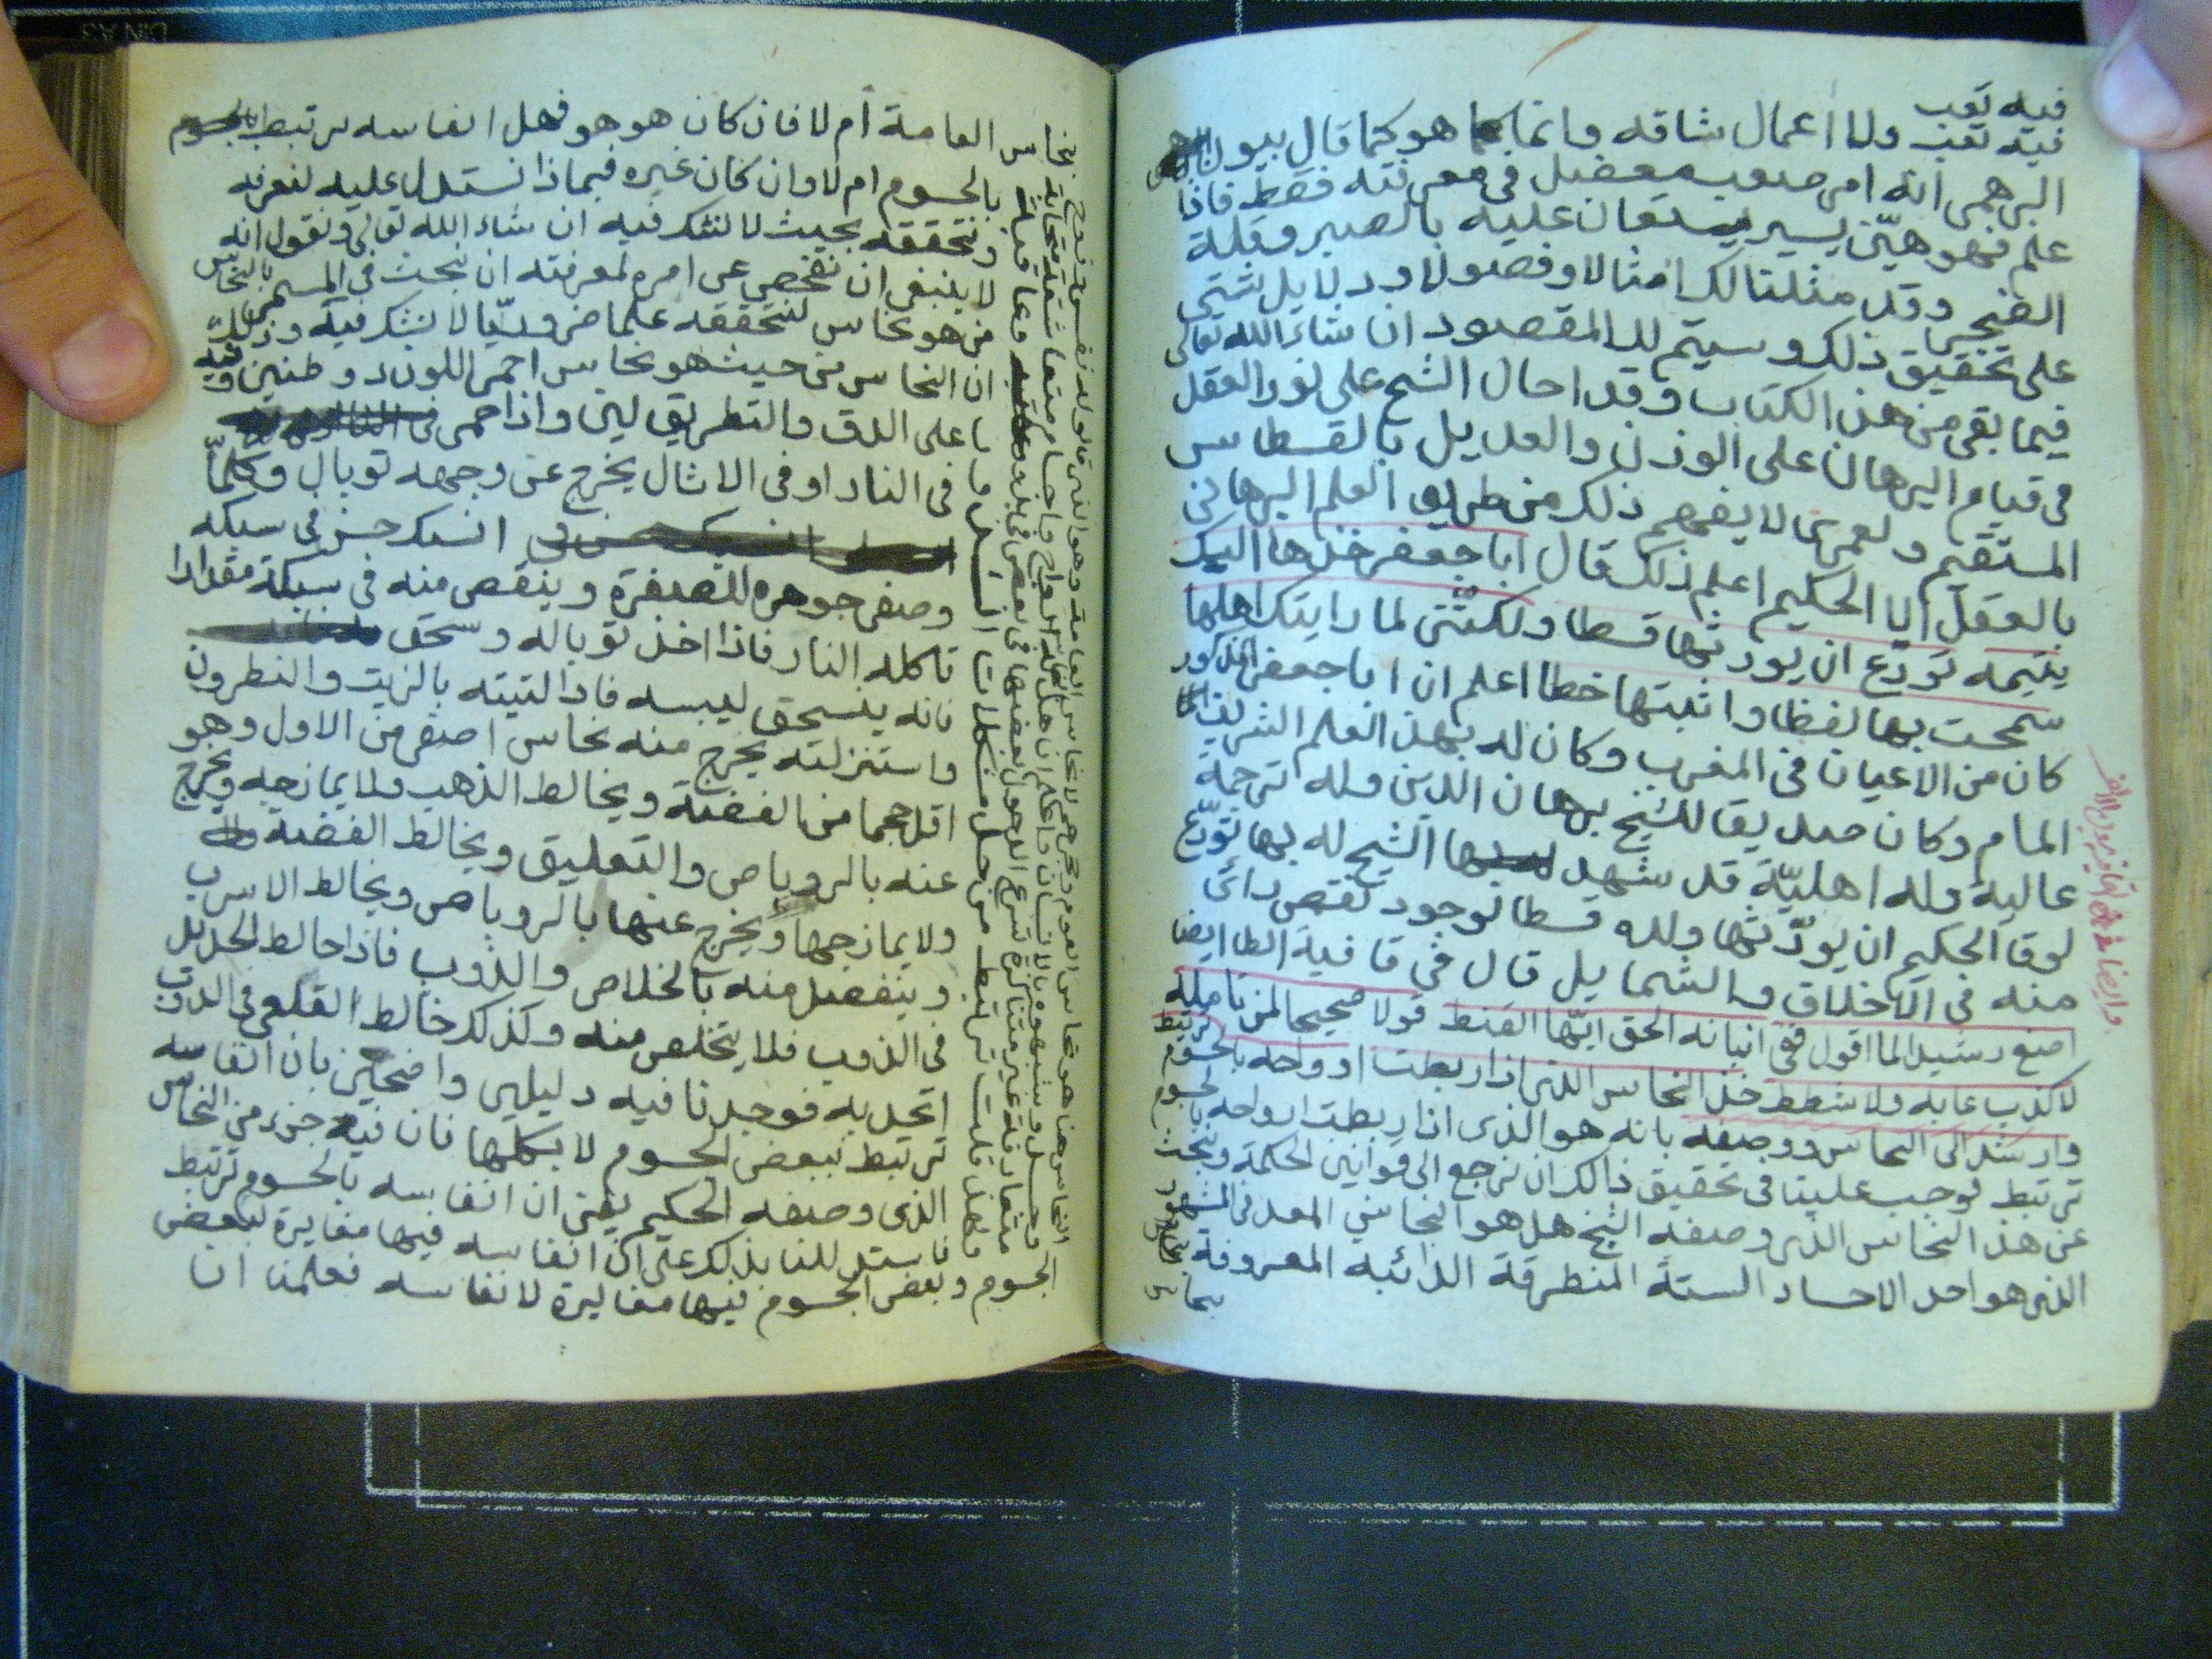 فيه تعب
فيه تعب ولا اعمال شاقه وانما هو كما قال بيون
البرهمى انه امر صعب معضل فى معرفته فقط فاذا
علم فهو هيّن يسير يستعان عليه بالصبر وقلة
الضجر وقد مثلنا لك امثالا وفصولا ودلايل شتى
على تحقيق ذلك وسيتم لك المقصود ان شاء الله تعالى
فيما بقى من هذا الكتاب وقد احال الشيخ على نور العقل
فى قيام البرهان على الوزن والعديل بالقسطاس
المستقيم ولعمرى لا يفهم ذلك من طريق العلم البرهانى
بالعقل الا الحكيم اعلم ذلك قال ابا جعفر خذها اليك
يتيمه تودّع ان يورثها قسطا ولكننى لما رايتك اهلها
سمحت بها لفظا واثبتها خطا اعلم ان ابا جعفر المذكور
كان من الاعيان فى المغرب وكان له بهذا العلم الشريف
المام وكان صديقا للشيخ برهان الدين وله ترجمة
عالية وله اهليّة قد شهد الشيخ له بها تودّع
لوقا الحكيم ان يورّثها ولده قسطا لوجود نقص رائى
منه فى الاخلاق والشمايل قال فى قافية الطا ايضا
اصغ رشيدا لما اقول ففى انبائه الحق ايّها القنط قولا صحيحا لمن تامله
لا كذب عابه ولا شطط خذ النحاس الذى اذا ربطت ارواحه بالجسوم ترتبط
وارشد الى النحاس ووصفه بانه هو الذى اذا ربطت ارواحه بالجسوم
ترتبط فوجب علينا فى تحقيق ذالك ان نرجع الى قوانين الحكمة ونبحث
عن هذا النحاس الذى وصفه الشيخ هل هو النحاس المعدنى المشهور
الذى هو احد الاجساد الستة المنطرقة الذائبة المعروفة
العامة أم لا فان كان هو هو فهل انفاسه ترتبط
بالجسوم ام لا وان كان غيره فبماذا نستدل عليه لنعرفه
ونتحققه بحيث لا نشك فيه ان شاء الله تعالى ونقول انه
لا ينبغى ان نفحص عن امره لمعرفته ان نبحث فى المسمى بالنحاس
من هو نحاس لنتحققه علما ضروريّا لا نشك فيه وذلك
ان النحاس من حيث هو نحاس احمر اللون ذو طنين وفيه
ما على الدق والتطريق لين واذا حمى
فى النار او فى الاثال يخرج عن وجهه توبال وكلمّا
انسبك حسن فى سبكه
وصفى جوهره للصفرة وينقص منه فى سبكه مقدارا
تاكله النار فاذا اخذ توباله وسحق
فانه ينسحق ليبسه فاذا لتيته بالزيت والنطرون
واستنزلته يخرج منه نحاس اصفى من الاول وهو
اقل حجما من الفضة ويخالط الذهب ولا يمازجه ويخرج
عنه بالروباص والتعليق ويخالط الفضة
ولا يمازجها ويخرج عنها بالروباص ويخالط الاسرب
وينفصل منه بالخلاص والذوب فاذا خالط الحديد
فى الذوب فلا يتخلص منه وكذلك خالط القلعى فى الذوب
اتحد به فوجدنا فيه دليلين واضحين بان انفاسه
ترتبط ببعض الجسوم لا بكلها فان فيه جزء من النحاس
الذى وصفه الحكيم يعنى ان انفاسه بالجسوم ترتبط
فاستدللنا بذلك على ان انفاسه فيها مغايرة لبعض
الجسوم وبعض الجسوم فيها مغايرة لانفاسه فعلمنا ان